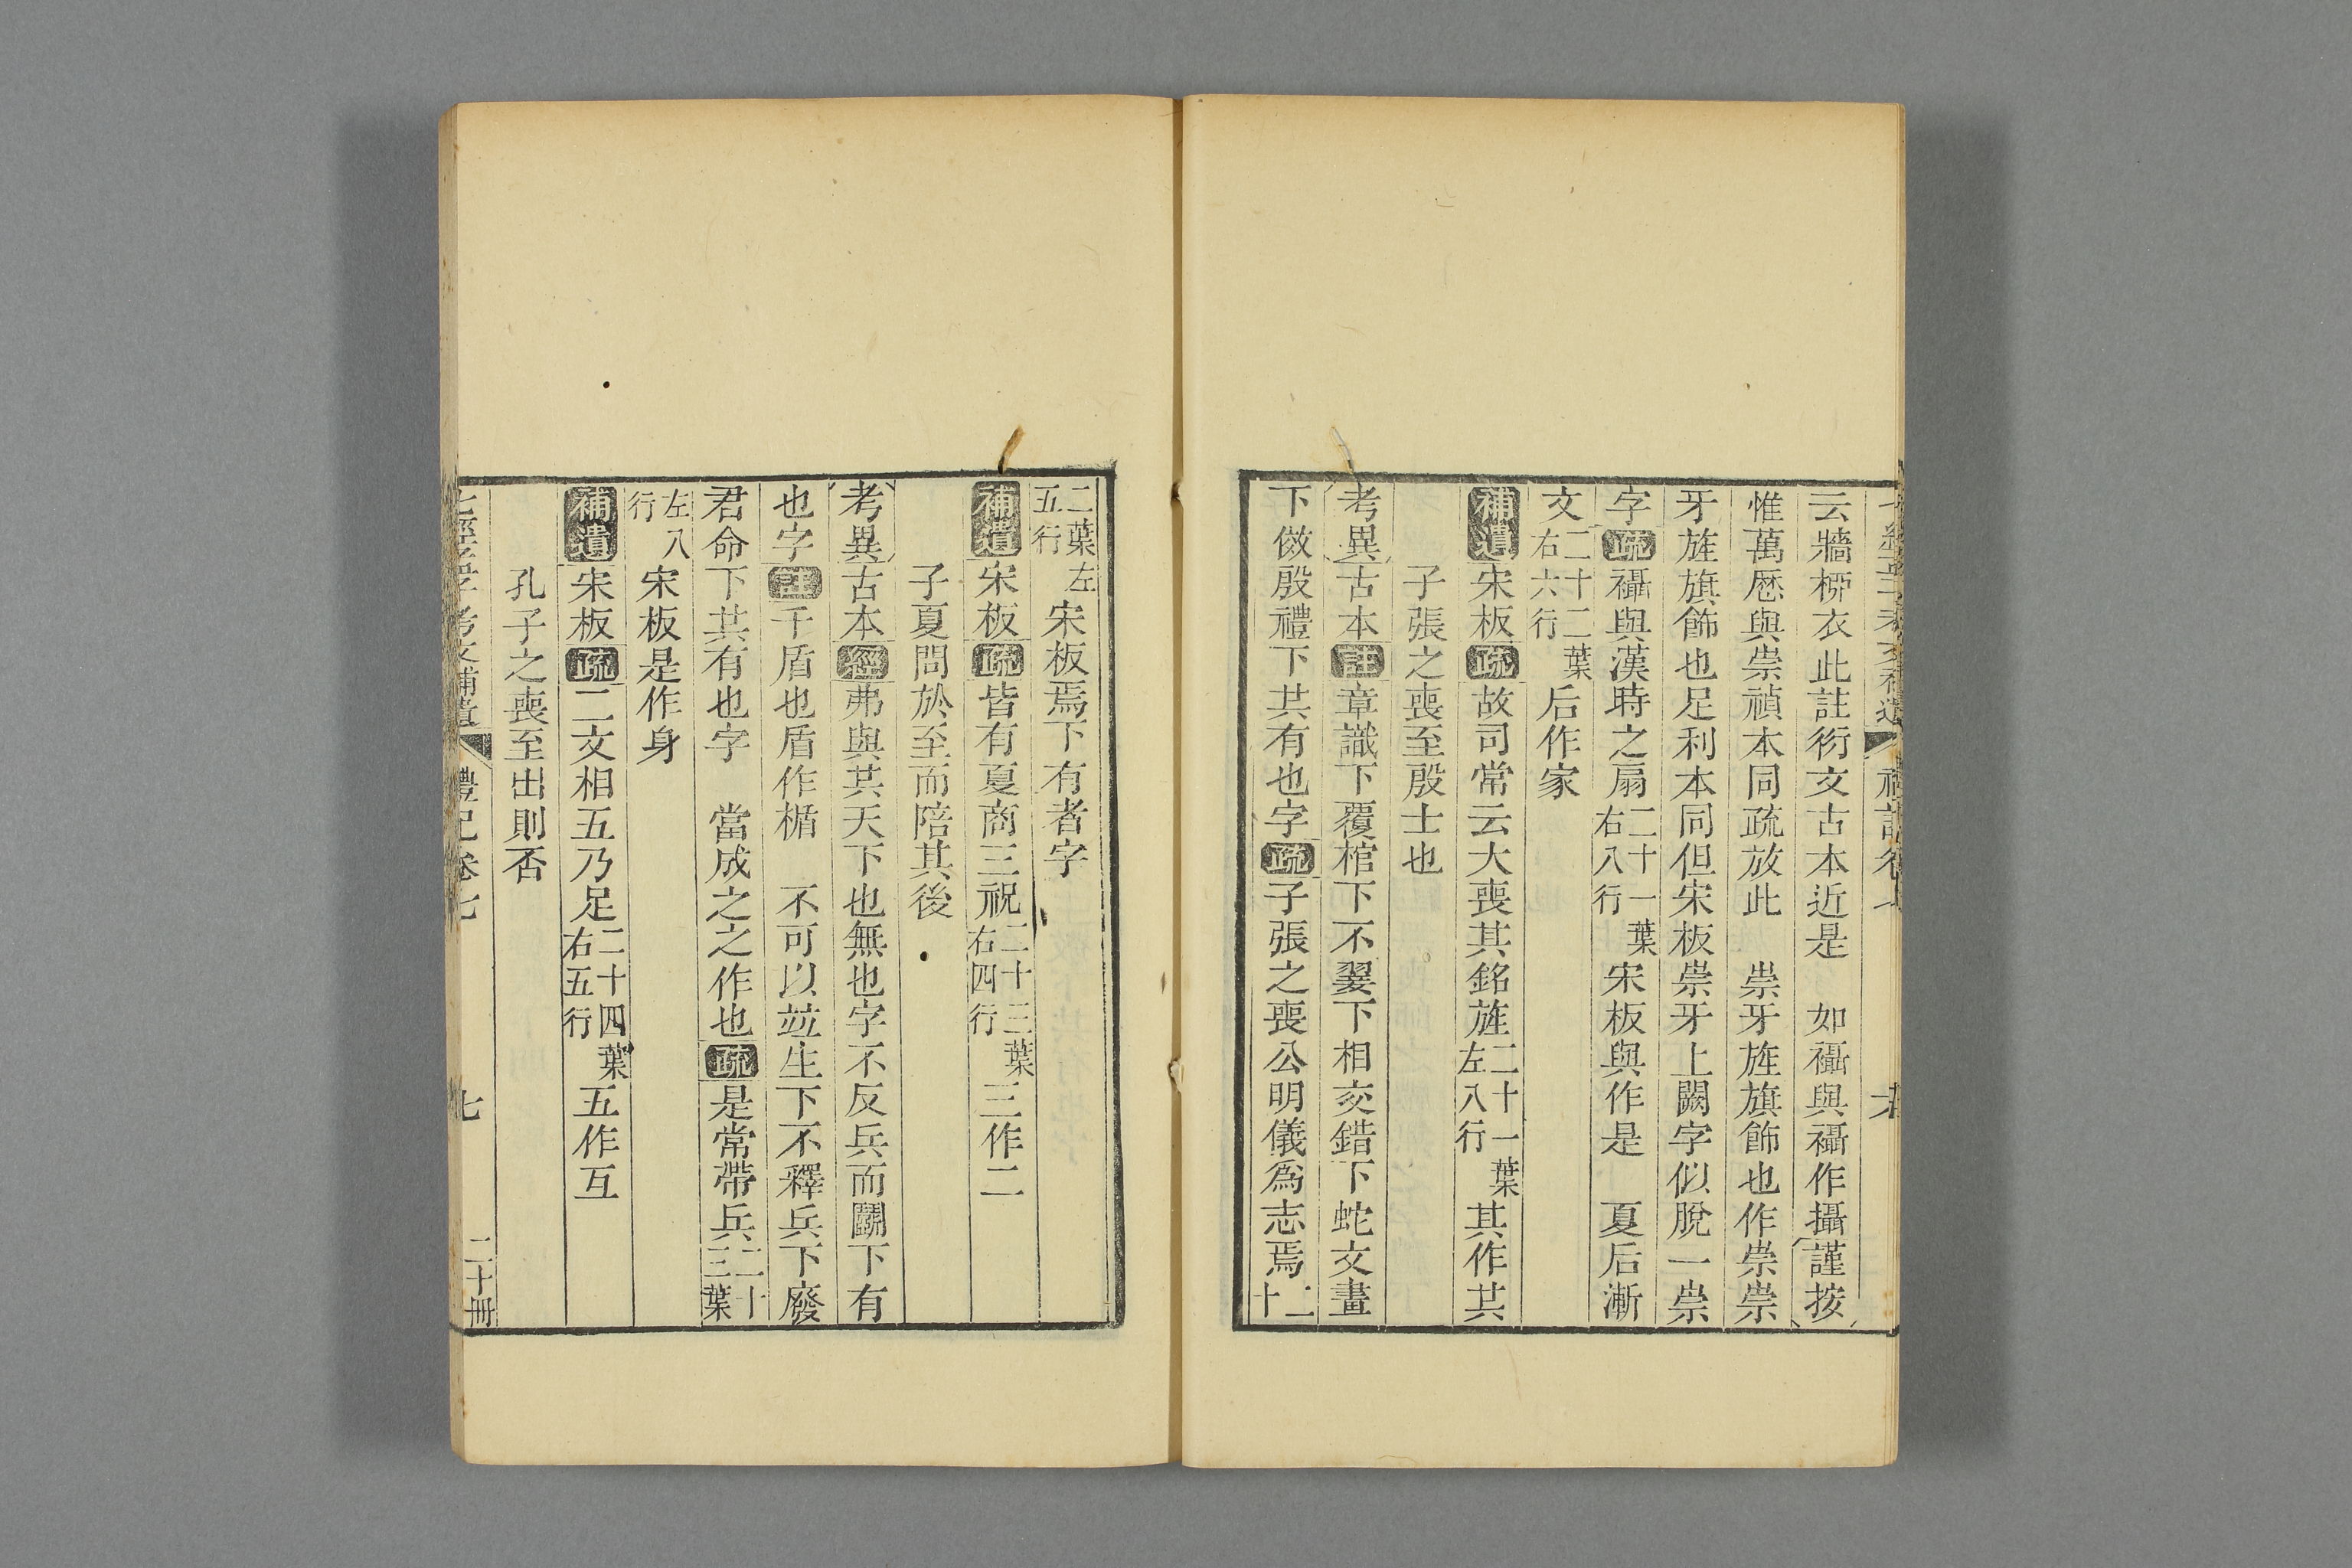 云牆柳衣此註衍文古本近是　如襵與襵作攝謹按
惟萬歷與崇禎本同疏放此　崇牙旌旗飾也作崇崇
牙旌旗飾也足利本同但宋板崇牙上闕字似脫一崇
字疏襵與漢時之扇二十一葉右八行宋板與作是　夏后漸
文二十二葉右六行后作家
補遺宋板疏故司常云大喪其銘旌二十一葉左八行其作共
子張之喪至殷士也
考異古本註章識下覆棺下不翣下相交錯下蛇文畫
下倣殷禮下共有也字疏子張之喪公明儀為志焉二十
二葉左五行宋板焉下有者字
補遺宋板疏皆有夏商三祝二十三葉右四行三作二
子夏問於至而陪其後
考異古本經弗與其天下也無也字不反兵而鬭下有
也字註干盾也盾作楯　不可以並生下不釋兵下廢
君命下共有也字　當成之之作也疏是常帶兵二十三葉
左八行宋板是作身
補遺宋板疏二文相五乃足二十四葉右五行五作互
孔子之喪至出則否
七經孟子考文補遺　禮記卷七　七　二十冊